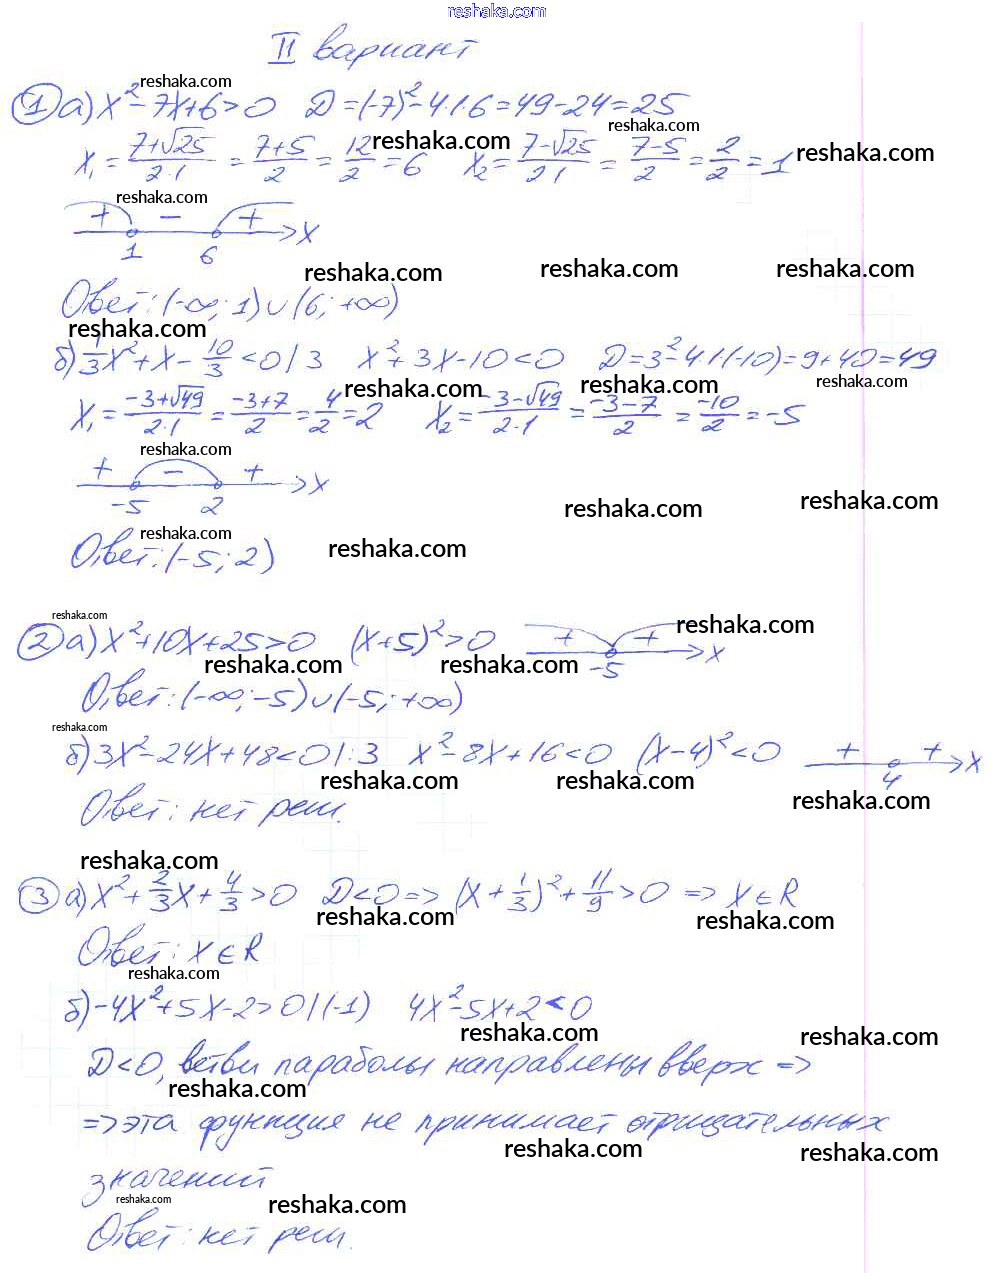 reshaka.com
II вариант
reshaka.com
① а) x² - 7x + 6 > 0 D = (-7)² - 4·1·6 = 49 - 24 = 25
reshaka.com reshaka.com
x₁ = (7+√25)/(2·1) = (7+5)/2 = 12/2 = 6 x₂ = (7-√25)/(2·1) = (7-5)/2 = 2/2 = 1 reshaka.com
reshaka.com
+ - + x
1 6
reshaka.com reshaka.com reshaka.com
Ответ: (-∞; 1) ∪ (6; +∞)
reshaka.com
б) 1/3 x² + x - 10/3 < 0 | 3 x² + 3x - 10 < 0 D = 3² - 4·1·(-10) = 9 + 40 = 49
reshaka.com reshaka.com reshaka.com
x₁ = (-3+√49)/(2·1) = (-3+7)/2 = 4/2 = 2 x₂ = (-3-√49)/(2·1) = (-3-7)/2 = -10/2 = -5
reshaka.com
+ - + x
-5 2
reshaka.com reshaka.com
reshaka.com reshaka.com
Ответ: (-5; 2)
reshaka.com
② а) x² + 10x + 25 > 0 (x+5)² > 0 + + x reshaka.com
-5
reshaka.com reshaka.com
Ответ: (-∞; -5) ∪ (-5; +∞)
reshaka.com
б) 3x² - 24x + 48 < 0 |:3 x² - 8x + 16 < 0 (x-4)² < 0 + + x
4
reshaka.com reshaka.com reshaka.com
Ответ: нет реш.
reshaka.com
③ а) x² + 2/3 x + 4/3 > 0 D < 0 => (x + 1/3)² + 11/9 > 0 => x ∈ R
reshaka.com reshaka.com
Ответ: x ∈ R
reshaka.com
б) -4x² + 5x - 2 > 0 |(-1) 4x² - 5x + 2 < 0
reshaka.com reshaka.com
D < 0, ветви параболы направлены вверх =>
reshaka.com
=> эта функция не принимает отрицательных
reshaka.com reshaka.com
значений
reshaka.com reshaka.com
Ответ: нет реш.